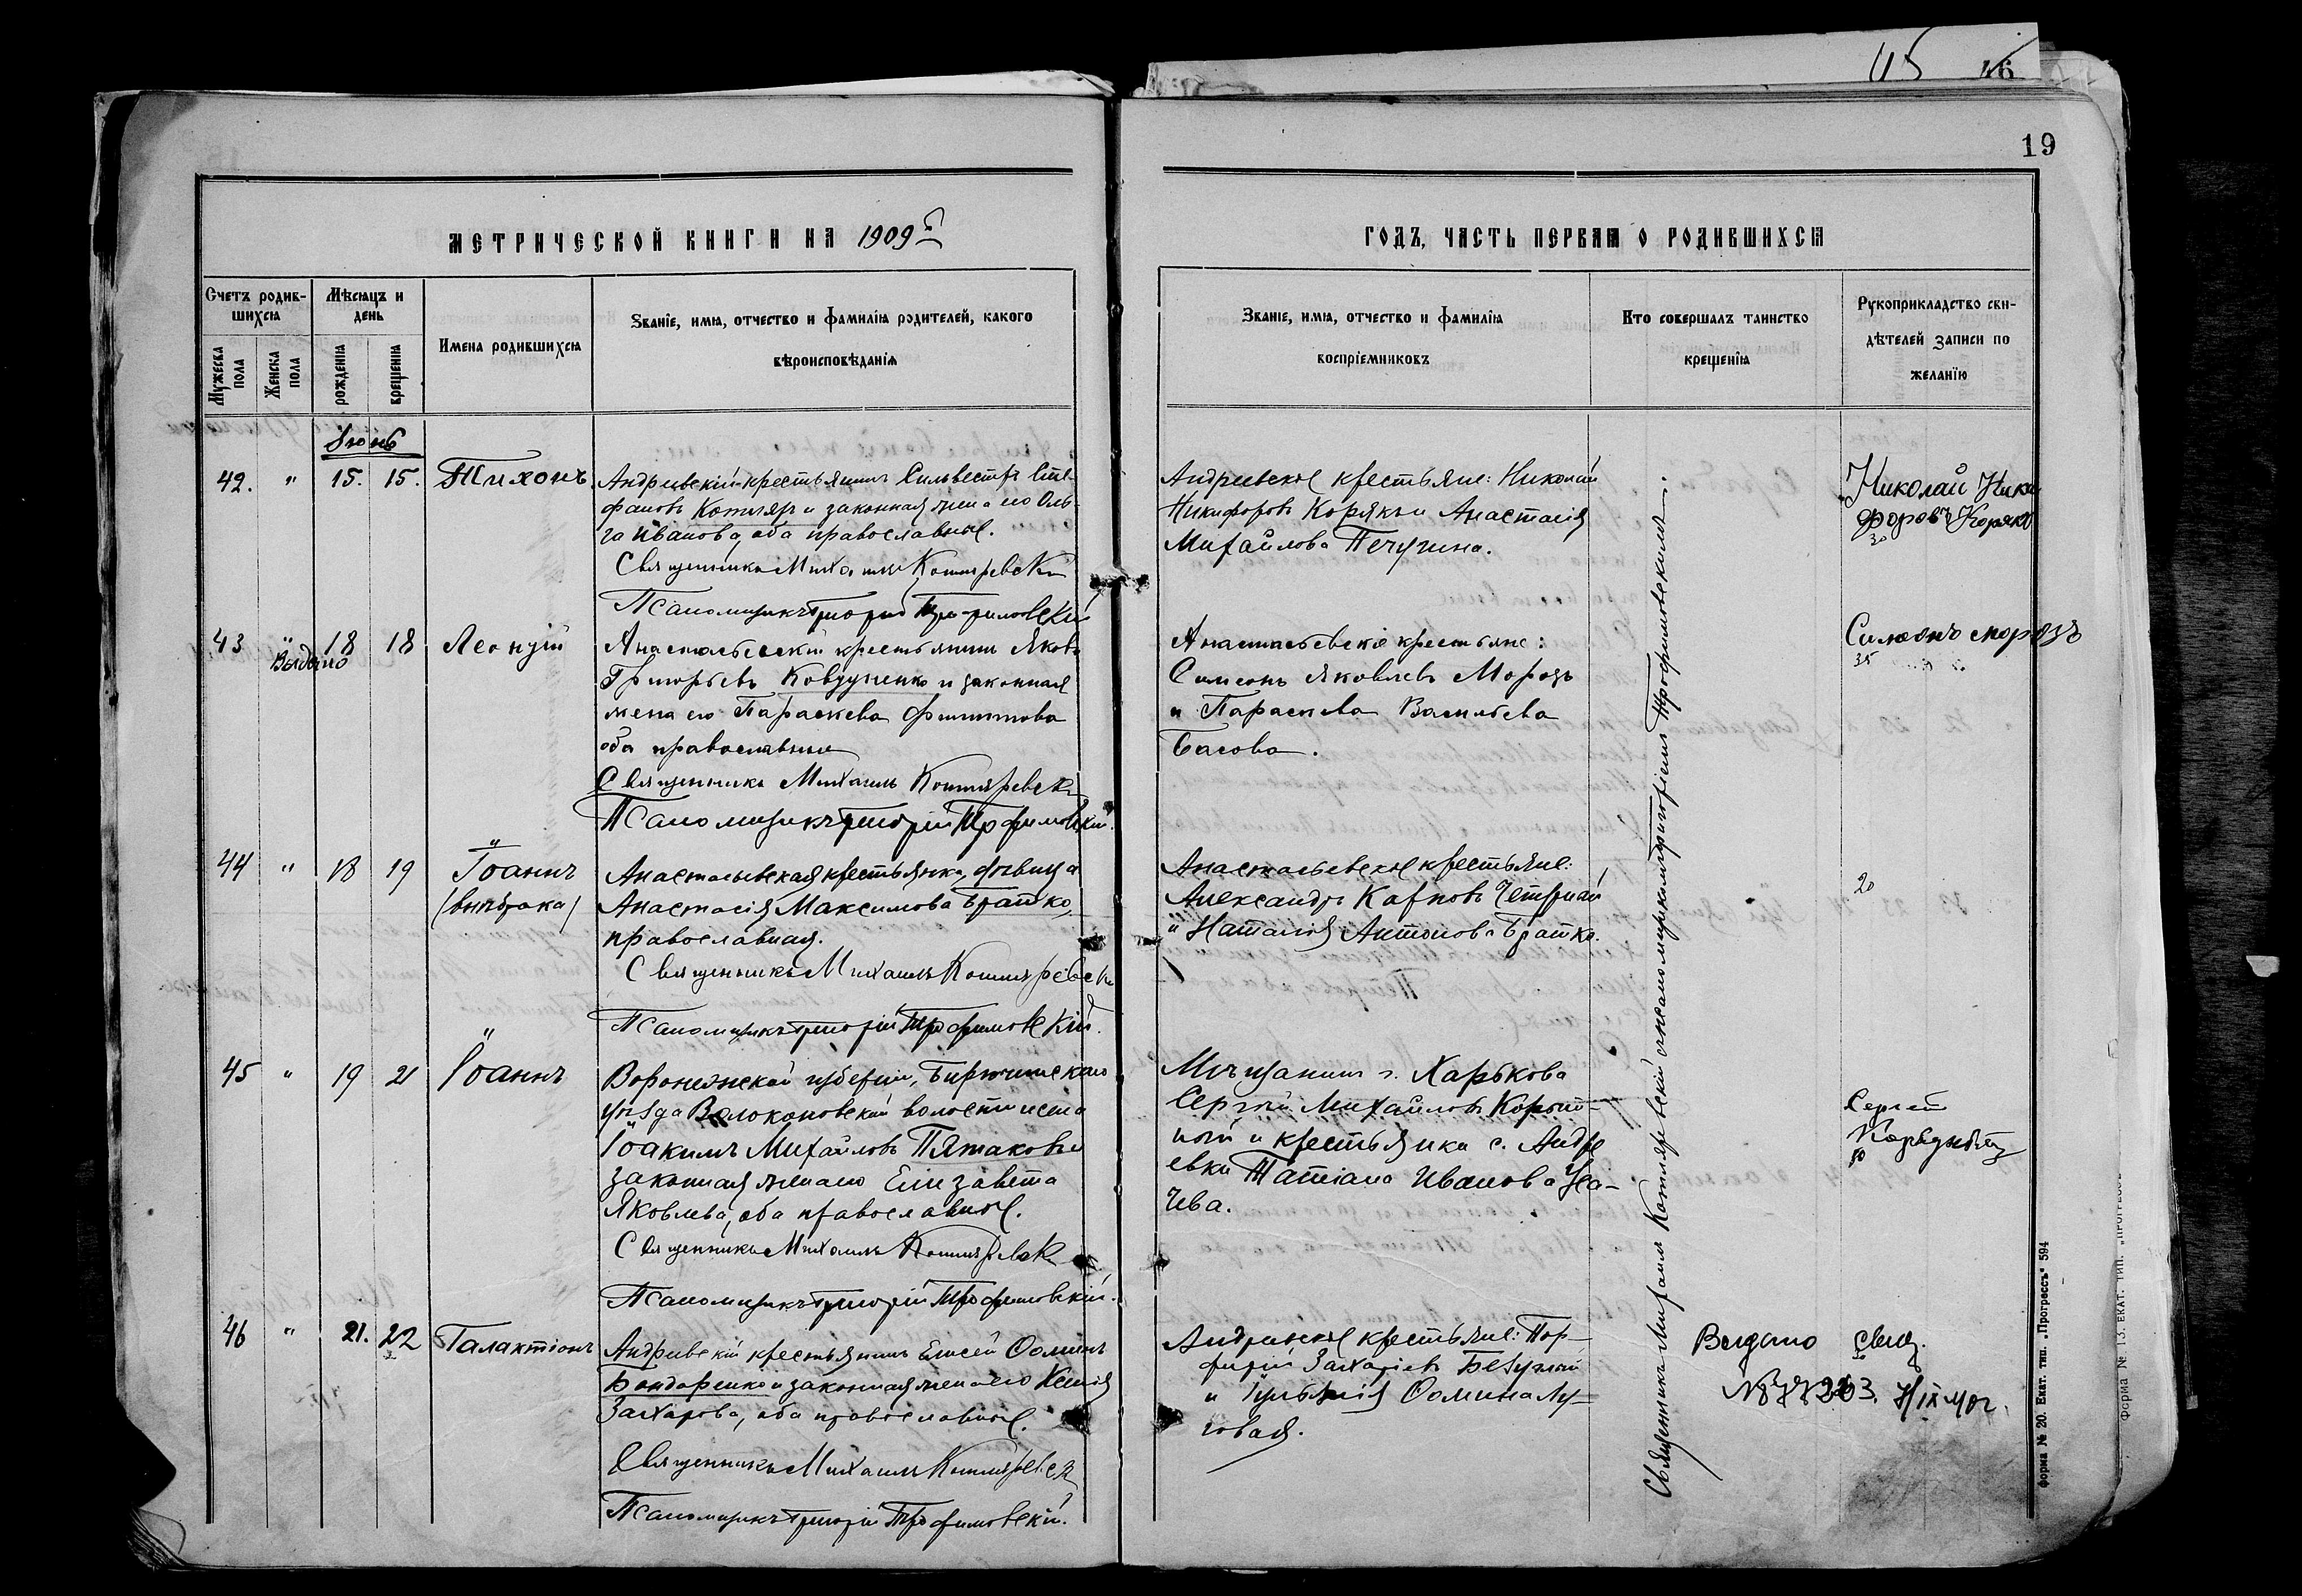 115 46
19
МЕТРИЧЕСКОЙ КНИГИ НА 1909й
ГОДЪ, ЧАСТЬ ПЕРВАЯ О РОДИВШИХСЯ
Счетъ родившихся
Мѣсяцъ и день
Имена родившихся
Званіе, имя, отчество и фамилія родителей, какого
вѣроисповѣданія
Мужеска пола
Женска пола
рожденія
крещенія
Званіе, имя, отчество и фамилія
воспріемниковъ
Кто совершалъ таинство
крещенія
Рукоприкладство сви-
дѣтелей записи по
желанію
Іюнь
42. " 15. 15. Тихонъ
Андреевскій крестьянинъ Сильвестръ Сте-
фановъ Котляръ и законная жена его Оль-
га Иванова, оба православные.
Священникъ Михаилъ Котляревскій
Псаломщикъ Григорій Трофимовскій
Андреевскіе крестьяне: Николай
Никифоровъ Корякъ и Анастасія
Михайлова Печугина.
Николай Ники
форовъ Корякъ
30
43 " 18 18 Леонтій
Выдано
Анастасьевскій крестьянинъ Яковъ
Григорьевъ Ковдученко и законная
жена его Параскева Филиппова
оба православные
Священникъ Михаилъ Котляревскій
Псаломщикъ Григорій Трофимовскій.
Анастасьевскіе крестьяне:
Симеонъ Яковлевъ Морозъ
и Параскева Васильева
Басова.
Симеонъ морозъ
35
44 " 18 19 Іоаннъ
(внѣбрака)
Анастасьевская крестьянка, дѣвица
Анастасія Максимова Братко,
православная.
Священникъ Михаилъ Котляревскій
Псаломщикъ Григорій Трофимовскій.
Анастасьевскіе крестьяне:
Александръ Карповъ
и Наталія Антонова Братко.
20
45 " 19 21 Іоаннъ
Воронежской губерніи, Бирюченскаго
уѣзда Волоконовской волости
Іоакимъ Михайловъ Пятаковъ и
законная жена его Елизавета
Яковлева, оба православные.
Священникъ Михаилъ Котляревскій
Псаломщикъ Григорій Трофимовскій.
Мѣщанинъ г. Харькова
Сергѣй Михайловъ
и крестьянка с. Андре
евки Татіана Иванова Уса-
чева.
Сергей
46 " 21. 22 Галактіонъ
Андреевскій крестьянинъ Елисей Ѳоминъ
Бондаренко и законная жена его Ксенія
Захарова, оба православные.
Священникъ Михаилъ Котляревскій
Псаломщикъ Григорій Трофимовскій.
Андреевскіе крестьяне: Пор-
фирій Захаріевъ Безуглый
и Гульянія Ѳомина Лу-
говая.
Священникъ Михаилъ Котляревскій съ псаломщикомъ Григоріемъ Трофимовскимъ.
Выдано свид.
Форма № 20. Екат. тип. „Прогрессъ“ 594
Форма № 13. ЕКАТ. ТИП. „ПРОГРЕССЪ“